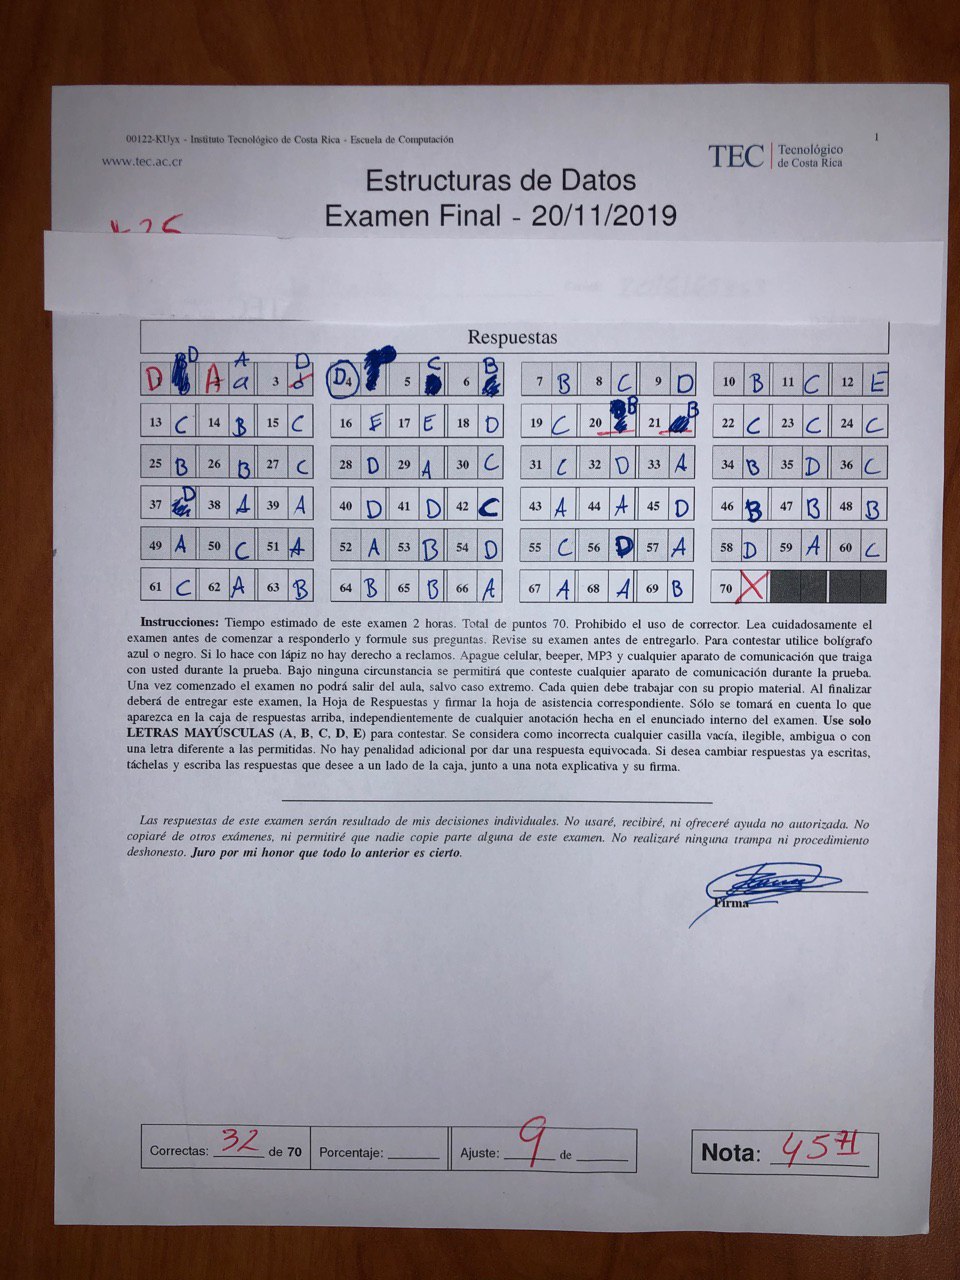 00122-KUyx - Instituto Tecnológico de Costa Rica - Escuela de Computación 1
www.tec.ac.cr
TEC Tecnológico de Costa Rica
Estructuras de Datos
Examen Final - 20/11/2019
Respuestas
D D A A a 3 D D 4 5 C 6 B 7 B 8 C 9 D 10 B 11 C 12 E
13 C 14 B 15 C 16 E 17 E 18 D 19 C 20 B 21 B 22 C 23 C 24 C
25 B 26 B 27 C 28 D 29 A 30 C 31 C 32 D 33 A 34 B 35 D 36 C
37 D 38 A 39 A 40 D 41 D 42 C 43 A 44 A 45 D 46 B 47 B 48 B
49 A 50 C 51 A 52 A 53 B 54 D 55 C 56 D 57 A 58 D 59 A 60 C
61 C 62 A 63 B 64 B 65 B 66 A 67 A 68 A 69 B 70 X
Instrucciones: Tiempo estimado de este examen 2 horas. Total de puntos 70. Prohibido el uso de corrector. Lea cuidadosamente el
examen antes de comenzar a responderlo y formule sus preguntas. Revise su examen antes de entregarlo. Para contestar utilice bolígrafo
azul o negro. Si lo hace con lápiz no hay derecho a reclamos. Apague celular, beeper, MP3 y cualquier aparato de comunicación que traiga
con usted durante la prueba. Bajo ninguna circunstancia se permitirá que conteste cualquier aparato de comunicación durante la prueba.
Una vez comenzado el examen no podrá salir del aula, salvo caso extremo. Cada quien debe trabajar con su propio material. Al finalizar
deberá de entregar este examen, la Hoja de Respuestas y firmar la hoja de asistencia correspondiente. Sólo se tomará en cuenta lo que
aparezca en la caja de respuestas arriba, independientemente de cualquier anotación hecha en el enunciado interno del examen. Use solo
LETRAS MAYÚSCULAS (A, B, C, D, E) para contestar. Se considera como incorrecta cualquier casilla vacía, ilegible, ambigua o con
una letra diferente a las permitidas. No hay penalidad adicional por dar una respuesta equivocada. Si desea cambiar respuestas ya escritas,
táchelas y escriba las respuestas que desee a un lado de la caja, junto a una nota explicativa y su firma.
Las respuestas de este examen serán resultado de mis decisiones individuales. No usaré, recibiré, ni ofreceré ayuda no autorizada. No
copiaré de otros exámenes, ni permitiré que nadie copie parte alguna de este examen. No realizaré ninguna trampa ni procedimiento
deshonesto. Juro por mi honor que todo lo anterior es cierto.
Firma
Correctas: 32 de 70 Porcentaje: Ajuste: 9 de Nota: 45 71